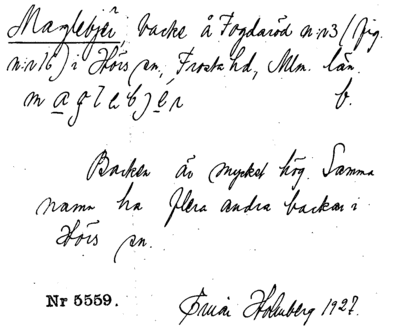 Maglebjär, backe å Fogdaröd n:r 3 (fig.
n:r 16) i Hörs sn, Frosta hd, Mlm. län.
maglebjer b.
Backen är mycket hög. Samma
namn ha flera andra backar i
Hörs sn.
Nr 5559. Holmberg 1927.